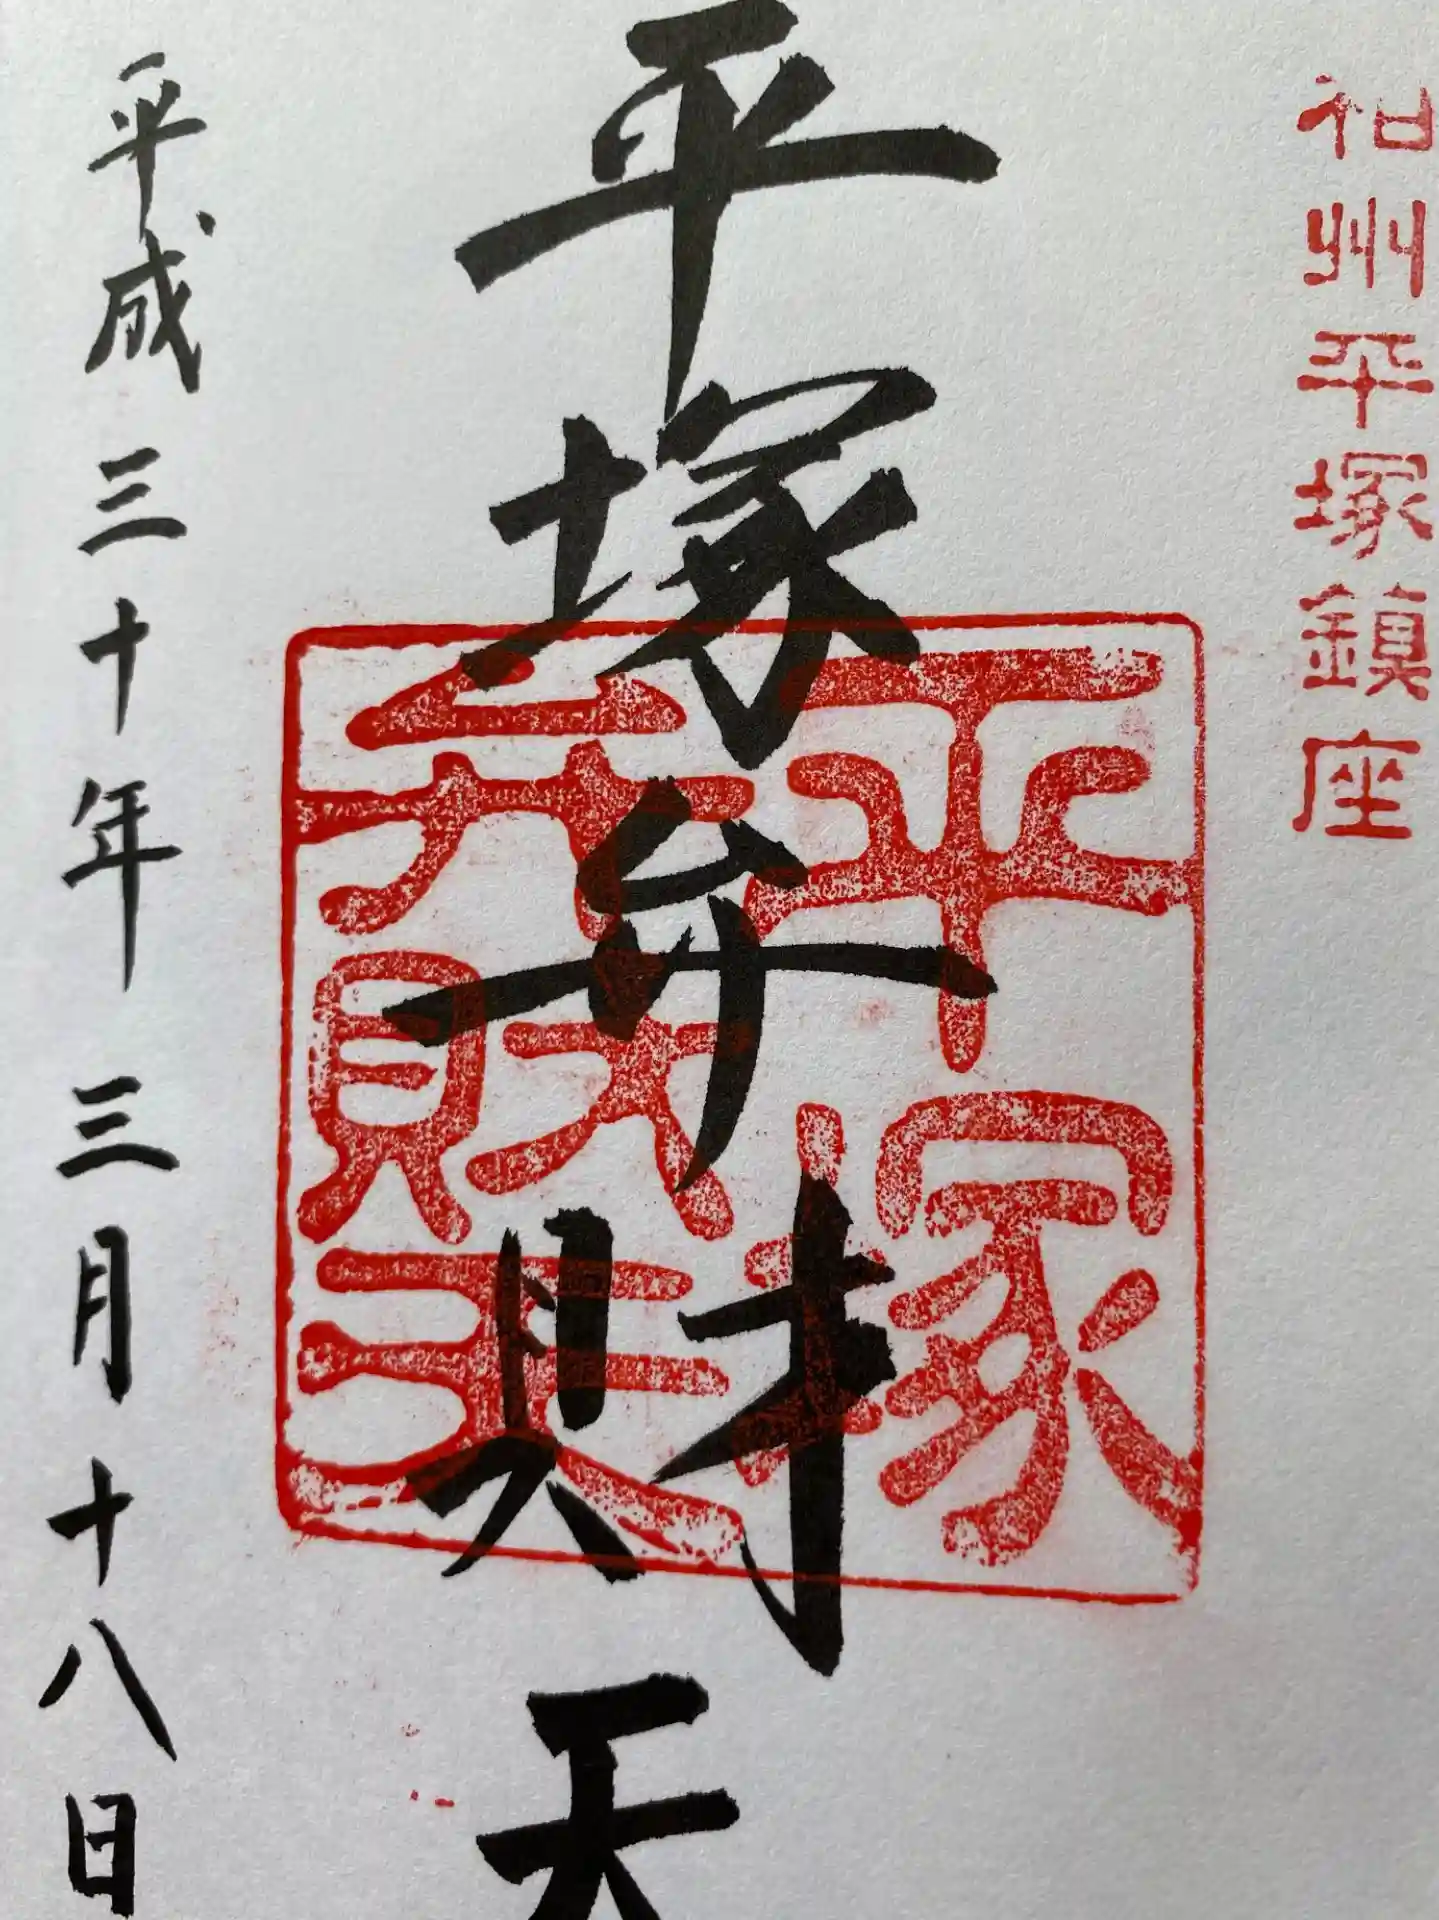 和州平塚鎮座
平塚弁財天
平塚
弁財天
平成三十年三月十八日